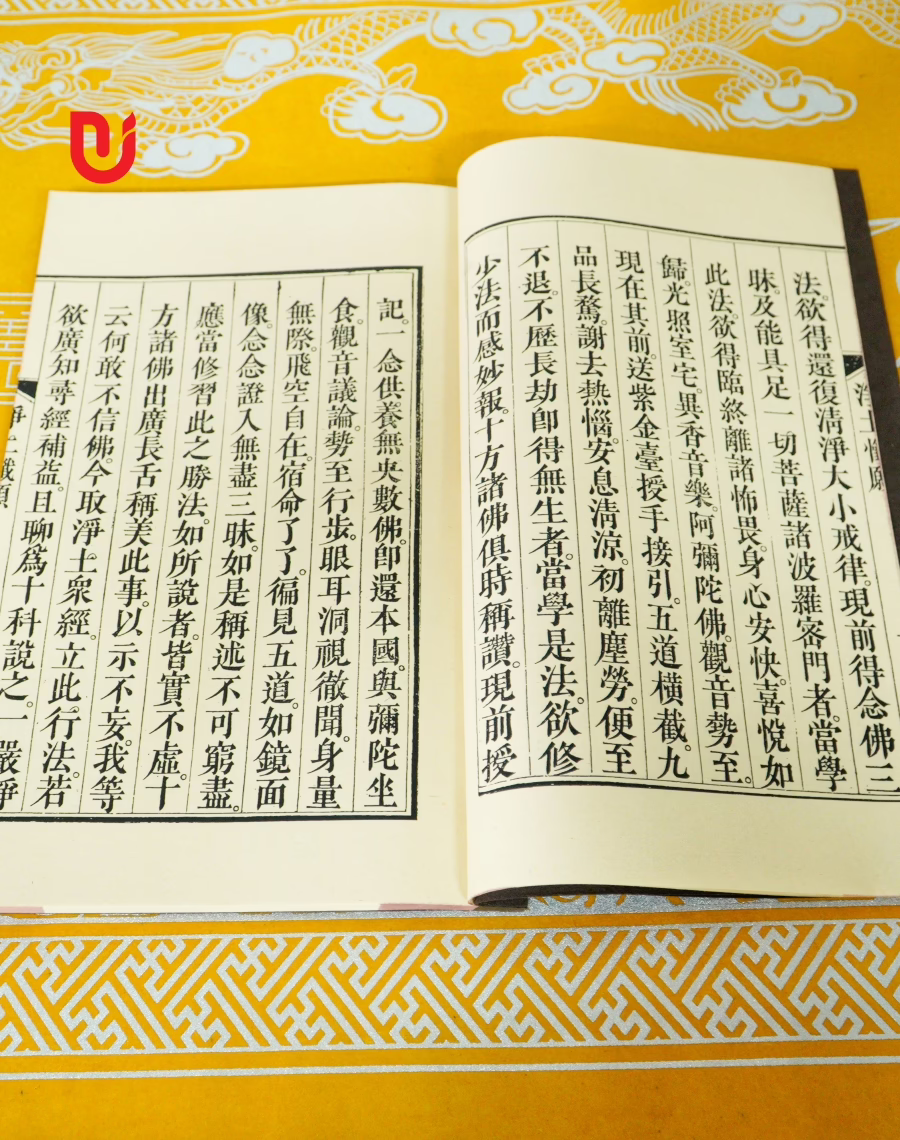 淨土懺願
法。欲得還復清淨大小戒律。現前得念佛三
昧。及能具足一切菩薩諸波羅密門者。當學
此法。欲得臨終離諸怖畏。身心安快。喜悅如
歸。光照室宅。異香音樂。阿彌陀佛。觀音勢至。
現在其前。送紫金臺授手接引。五道橫截。九
品長騖。謝去熱惱。安息清涼。初離塵勞。便至
不退。不歷長劫卽得無生者。當學是法。欲修
少法而感妙報。十方諸佛俱時稱讚。現前授
記。一念供養無央數佛。卽還本國。與彌陀坐
食。觀音議論。勢至行步。眼耳洞視徹聞。身量
無際。飛空自在。宿命了了。徧見五道。如鏡面
像。念念證入無盡三昧。如是稱述不可窮盡。
應當修習此之勝法。如所說者。皆實不虛。十
方諸佛出廣長舌稱美此事。以示不妄。我等
云何敢不信佛。今取淨土眾經。立此行法。若
欲廣知尋經補益。且聊爲十科說之。一嚴淨
淨土懺願